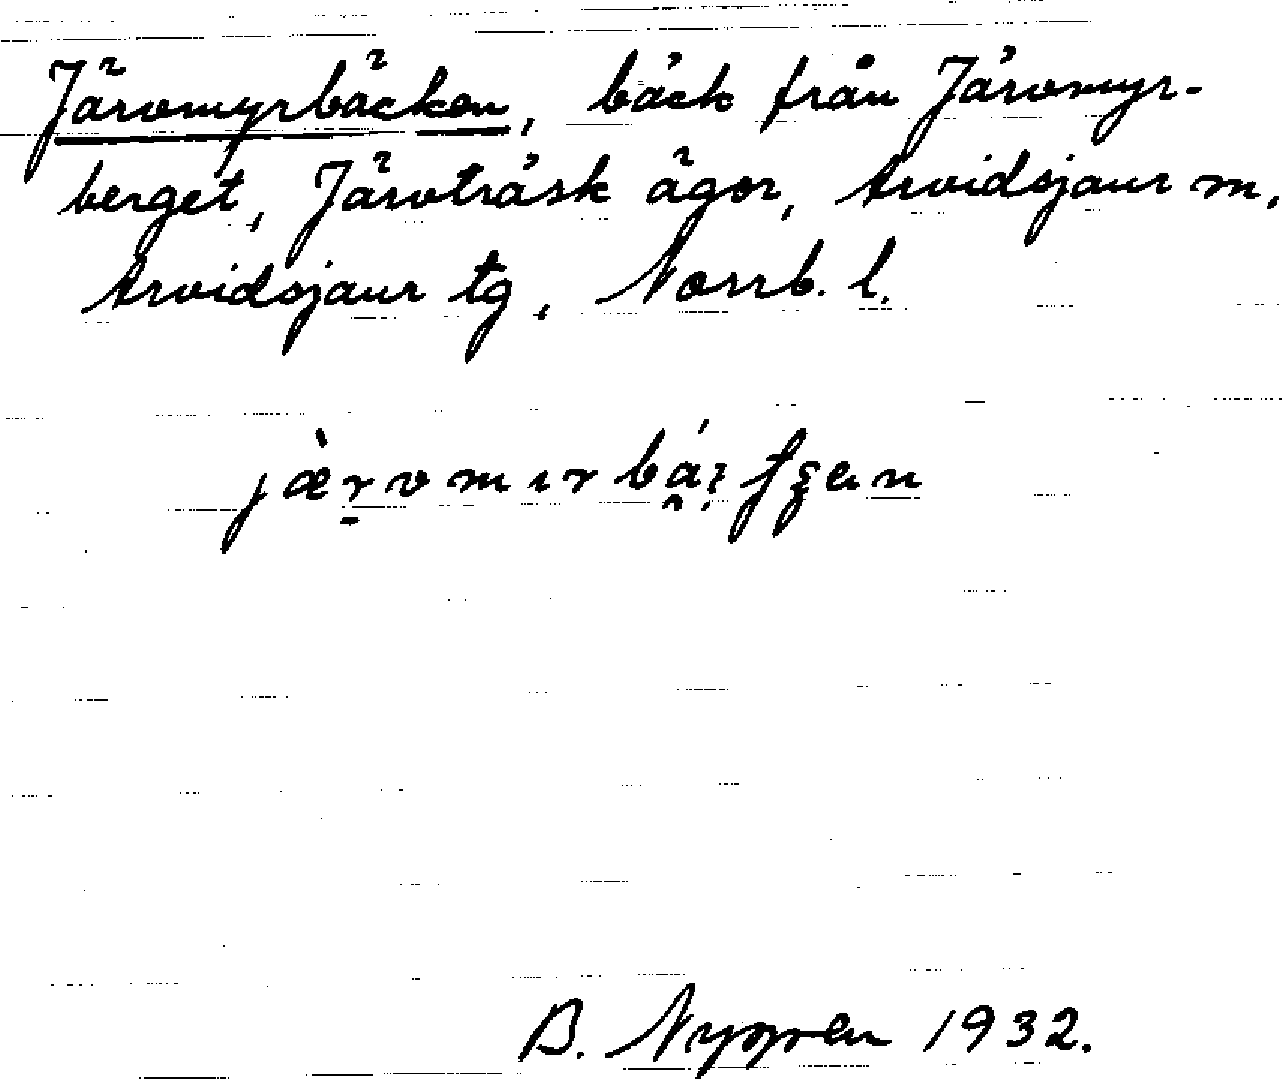 Järvmyrbäcken, bäck från Järvmyr-
berget, Järvträsk ägor, Arvidsjaur sn,
Arvidsjaur tg, Norrb. l.
B. Nygren 1932.